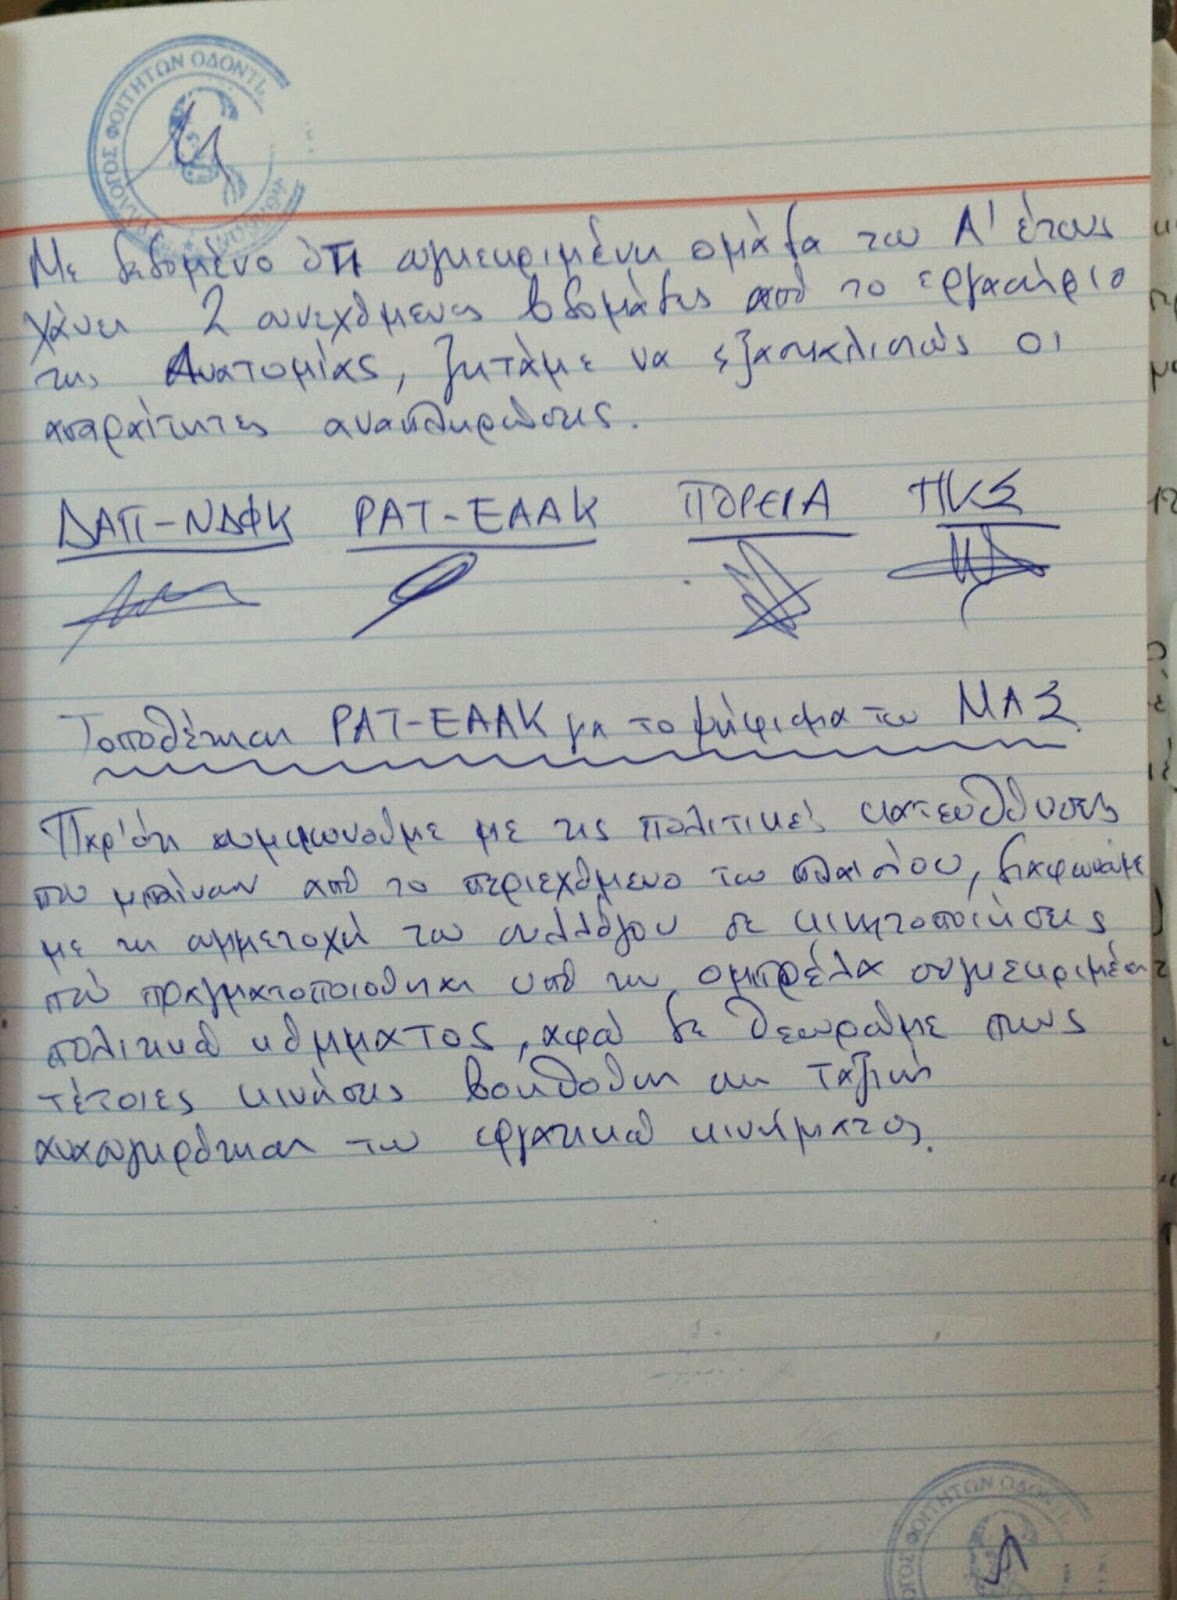 ΣΥΛΛΟΓΟΣ ΦΟΙΤΗΤΩΝ ΟΔΟΝΤΙ
Με δεδομένο ότι συγκεκριμένη ομάδα του Α' έτους
χάνει 2 συνεχόμενες βδομάδες από το εργαστήριο
της Ανατομίας, ζητάμε να εξασφαλιστούν οι
απαραίτητες αναπληρώσεις.
ΔΑΠ-ΝΔΦΚ ΡΑΤ-ΕΑΑΚ ΠΟΡΕΙΑ ΠΚΣ
Τοποθέτηση ΡΑΤ-ΕΑΑΚ για το ψήφισμα του ΜΑΣ
Παρ' ότι συμφωνούμε με τις πολιτικές κατευθύνσεις
που μπαίνουν από το περιεχόμενο του πλαισίου, διαφωνούμε
με τη συμμετοχή του συλλόγου σε κινητοποιήσεις
που πραγματοποιούνται υπό την ομπρέλα συγκεκριμένου
πολιτικού κόμματος, αφού δε θεωρούμε πως
τέτοιες κινήσεις βοηθούν στη ταξική
ανασυγκρότηση του εργατικού κινήματος.
ΟΓΟΣ ΦΟΙΤΗΤΩΝ ΟΔΟΝΤΙ